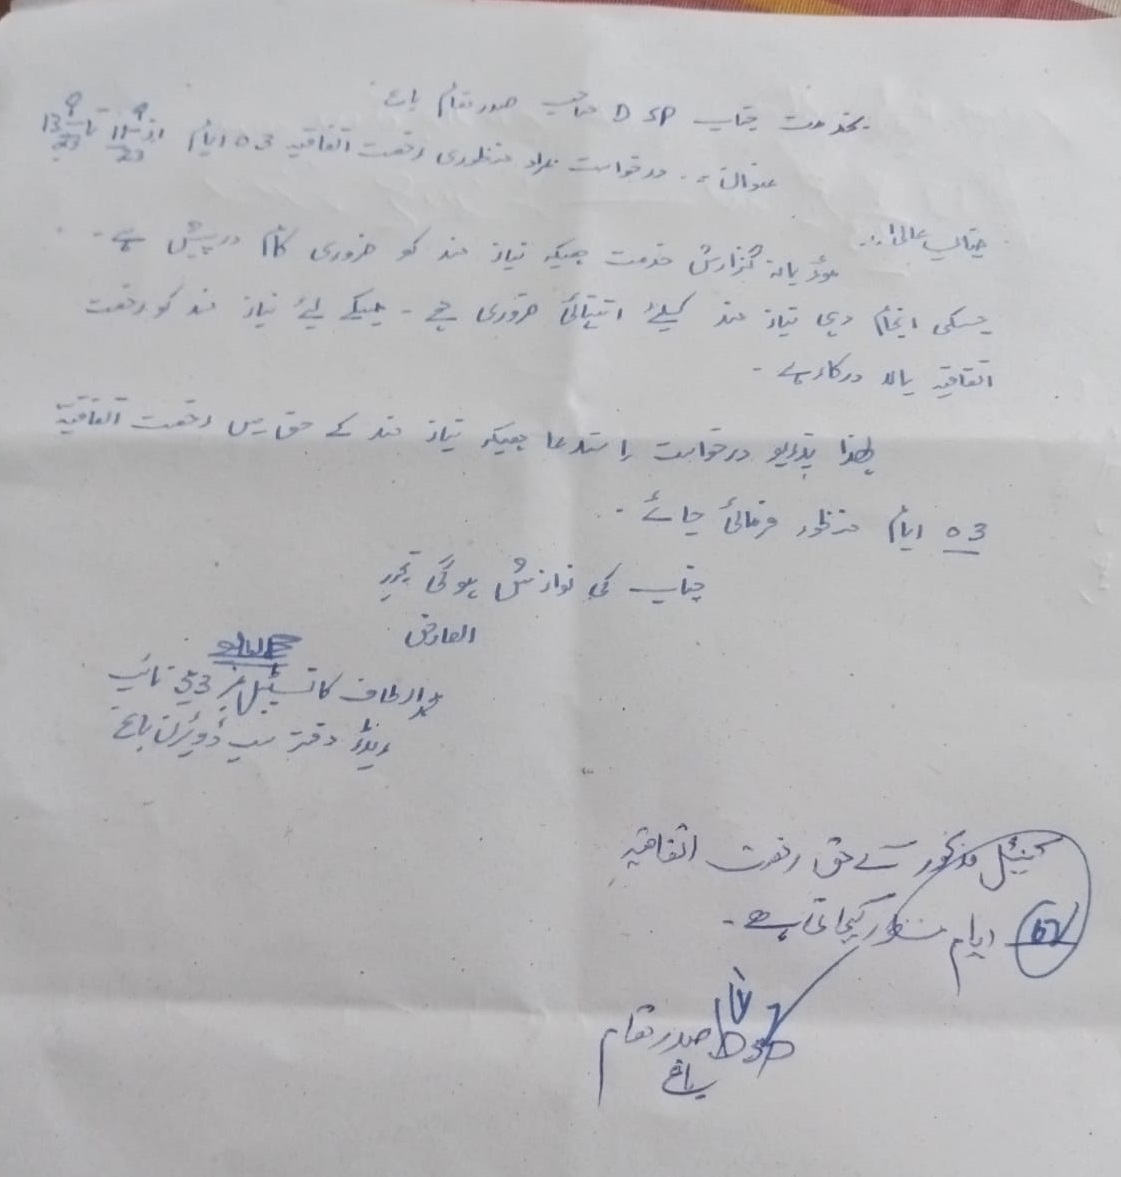 بخدمت جناب DSP صاحب صدر مقام باغ
عنوان :۔ درخواست بمراد منظوری رخصت اتفاقیہ 03 ایام از 11-9-23 تا 13-9-23
جناب عالی!..
مؤدبانہ گزارش خدمت ہیکہ نیاز مند کو ضروری کام درپیش ہے۔
جسکی انجام دہی نیاز مند کیلئے انتہائی ضروری ہے۔ جسکے لیے نیاز مند کو رخصت
اتفاقیہ بالا درکار ہے۔
لھذا بذریعہ درخواست استدعا ہیکہ نیاز مند کے حق میں رخصت اتفاقیہ
03 ایام منظور فرمائی جائے۔
جناب کی نوازش ہوگی
العارض
الطاف کانسٹیبل نمبر 53 نائب
ریڈر دفتر سب ڈویژن باغ
کنسٹیبل مذکور کے حق رخصت اتفاقیہ
ایام منظور کیجاتی ہے۔
DSP صدر مقام
باغ